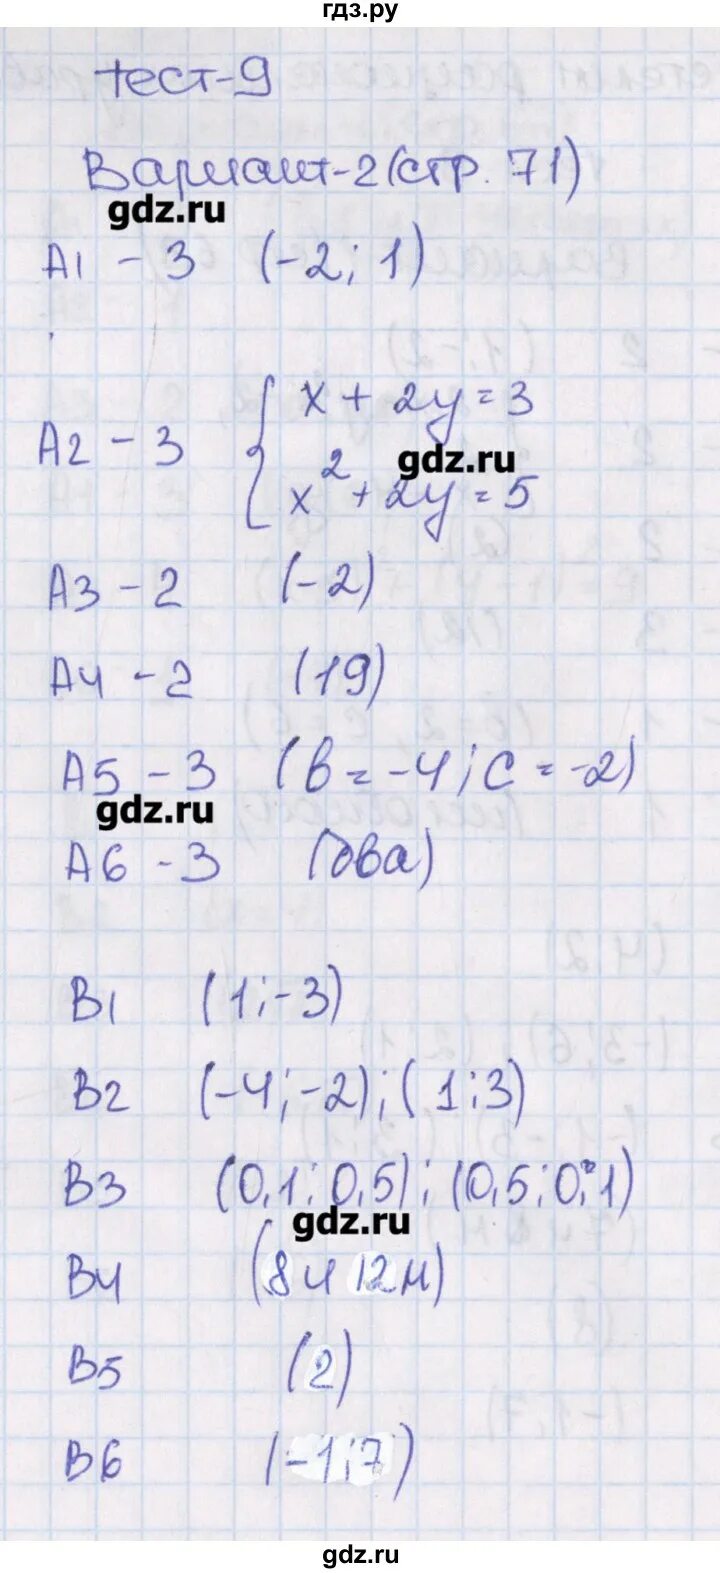 гдз.ру
тест-9
Вариант-2 (стр. 71)
gdz.ru
А1 - 3 (-2; 1)
А2 - 3 { x + 2y = 3
gdz.ru
x² + 2y = 5
А3 - 2 (-2)
А4 - 2 (19)
А5 - 3 (в = -4; с = -2)
gdz.ru
А6 - 3 (два)
В1 (1; -3)
В2 (-4; -2); (1; 3)
В3 (0,1; 0,5); (0,5; 0,1)
gdz.ru
В4 (8 и 12 м)
В5 (2)
В6 (-1; 7)
gdz.ru